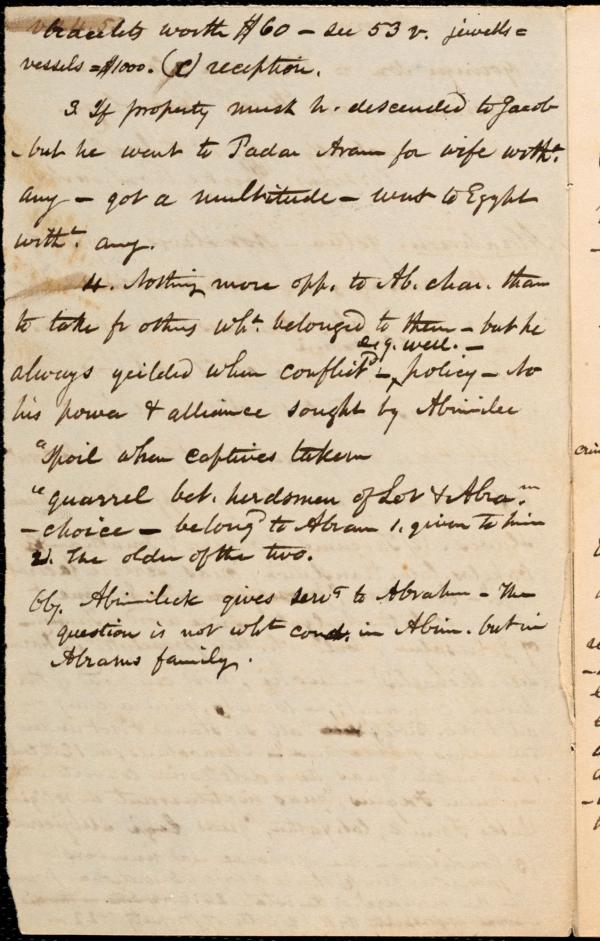 bracelets worth $60 – see 53 v. jewells =
vessels = $1000. (c) reception.
3 If property must h. descended to Jacob
– but he went to Padan Aram for wife witht.
any – got a multitude – went to Egypt
witht. any.
4. Nothing more opp. to Ab. char. than
to take fr others wht. belonged to them – but he
eg. well. –
always yeilded when conflictd – policy – So
his power & alliance sought by Abimilec
" Spoil when captives taken
" quarrel bet. herdsmen of Lot & Abram
– choice – belongd to Abram 1. given to him
2. The older of the two.
Obj. Abimileck gives servts to Abrahm – The
question is not wht cond. in Abim. but in
Abrams family.